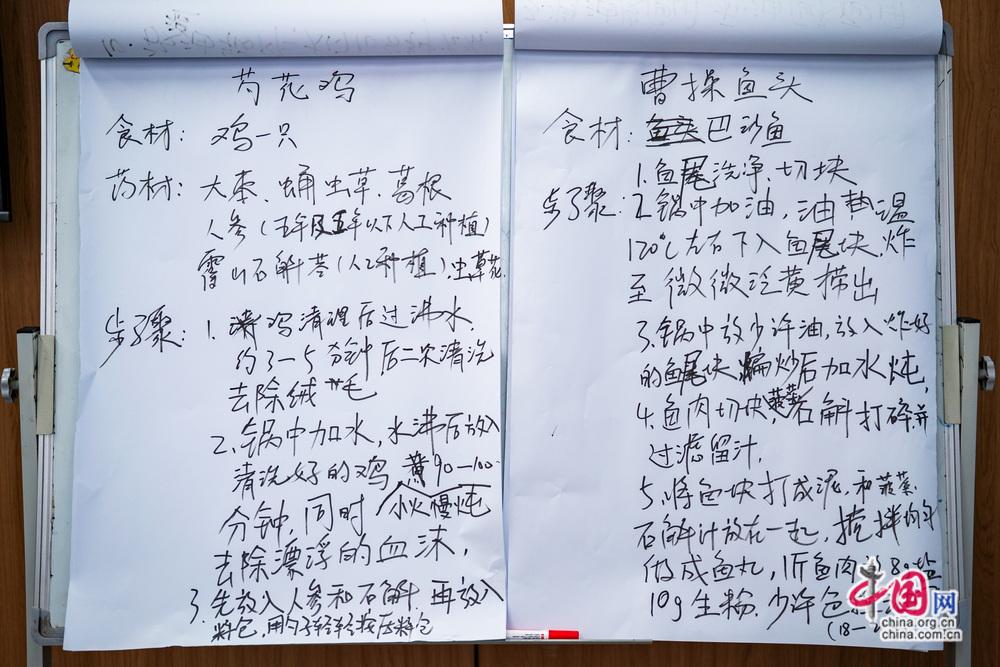 芍花鸡
食材: 鸡一只
药材: 大枣、蛹虫草、葛根
人参(五年及五年以下人工种植)
霍山石斛茎(人工种植).虫草花.
步骤: 1. 鸡清理后过沸水.
约3-5分钟后二次清洗
去除绒毛
2.锅中加水,水沸后放入
清洗好的鸡 90-100
分钟,同时 小火慢炖
去除漂浮的血沫,
3.先放入人参和石斛.再放入
料包,用勺子轻轻按压料包
曹操鱼头
食材: 巴沙鱼
1.鱼尾洗净、切块
步骤: 2.锅中加油,油热温
120℃左右下入鱼尾块.炸
至微微泛黄捞出
3.锅中放少许油,放入炸好
的鱼尾块,煸炒后加水炖,
4.鱼肉切块,菠菜石斛打碎并
过滤留汁,
5.将鱼块打成泥,和菠菜.
石斛汁放在一起,搅拌均匀
做成鱼丸,1斤鱼肉 8g盐
10g生粉.少许色
(18-
中国网
china.org.cn
china.com.cn